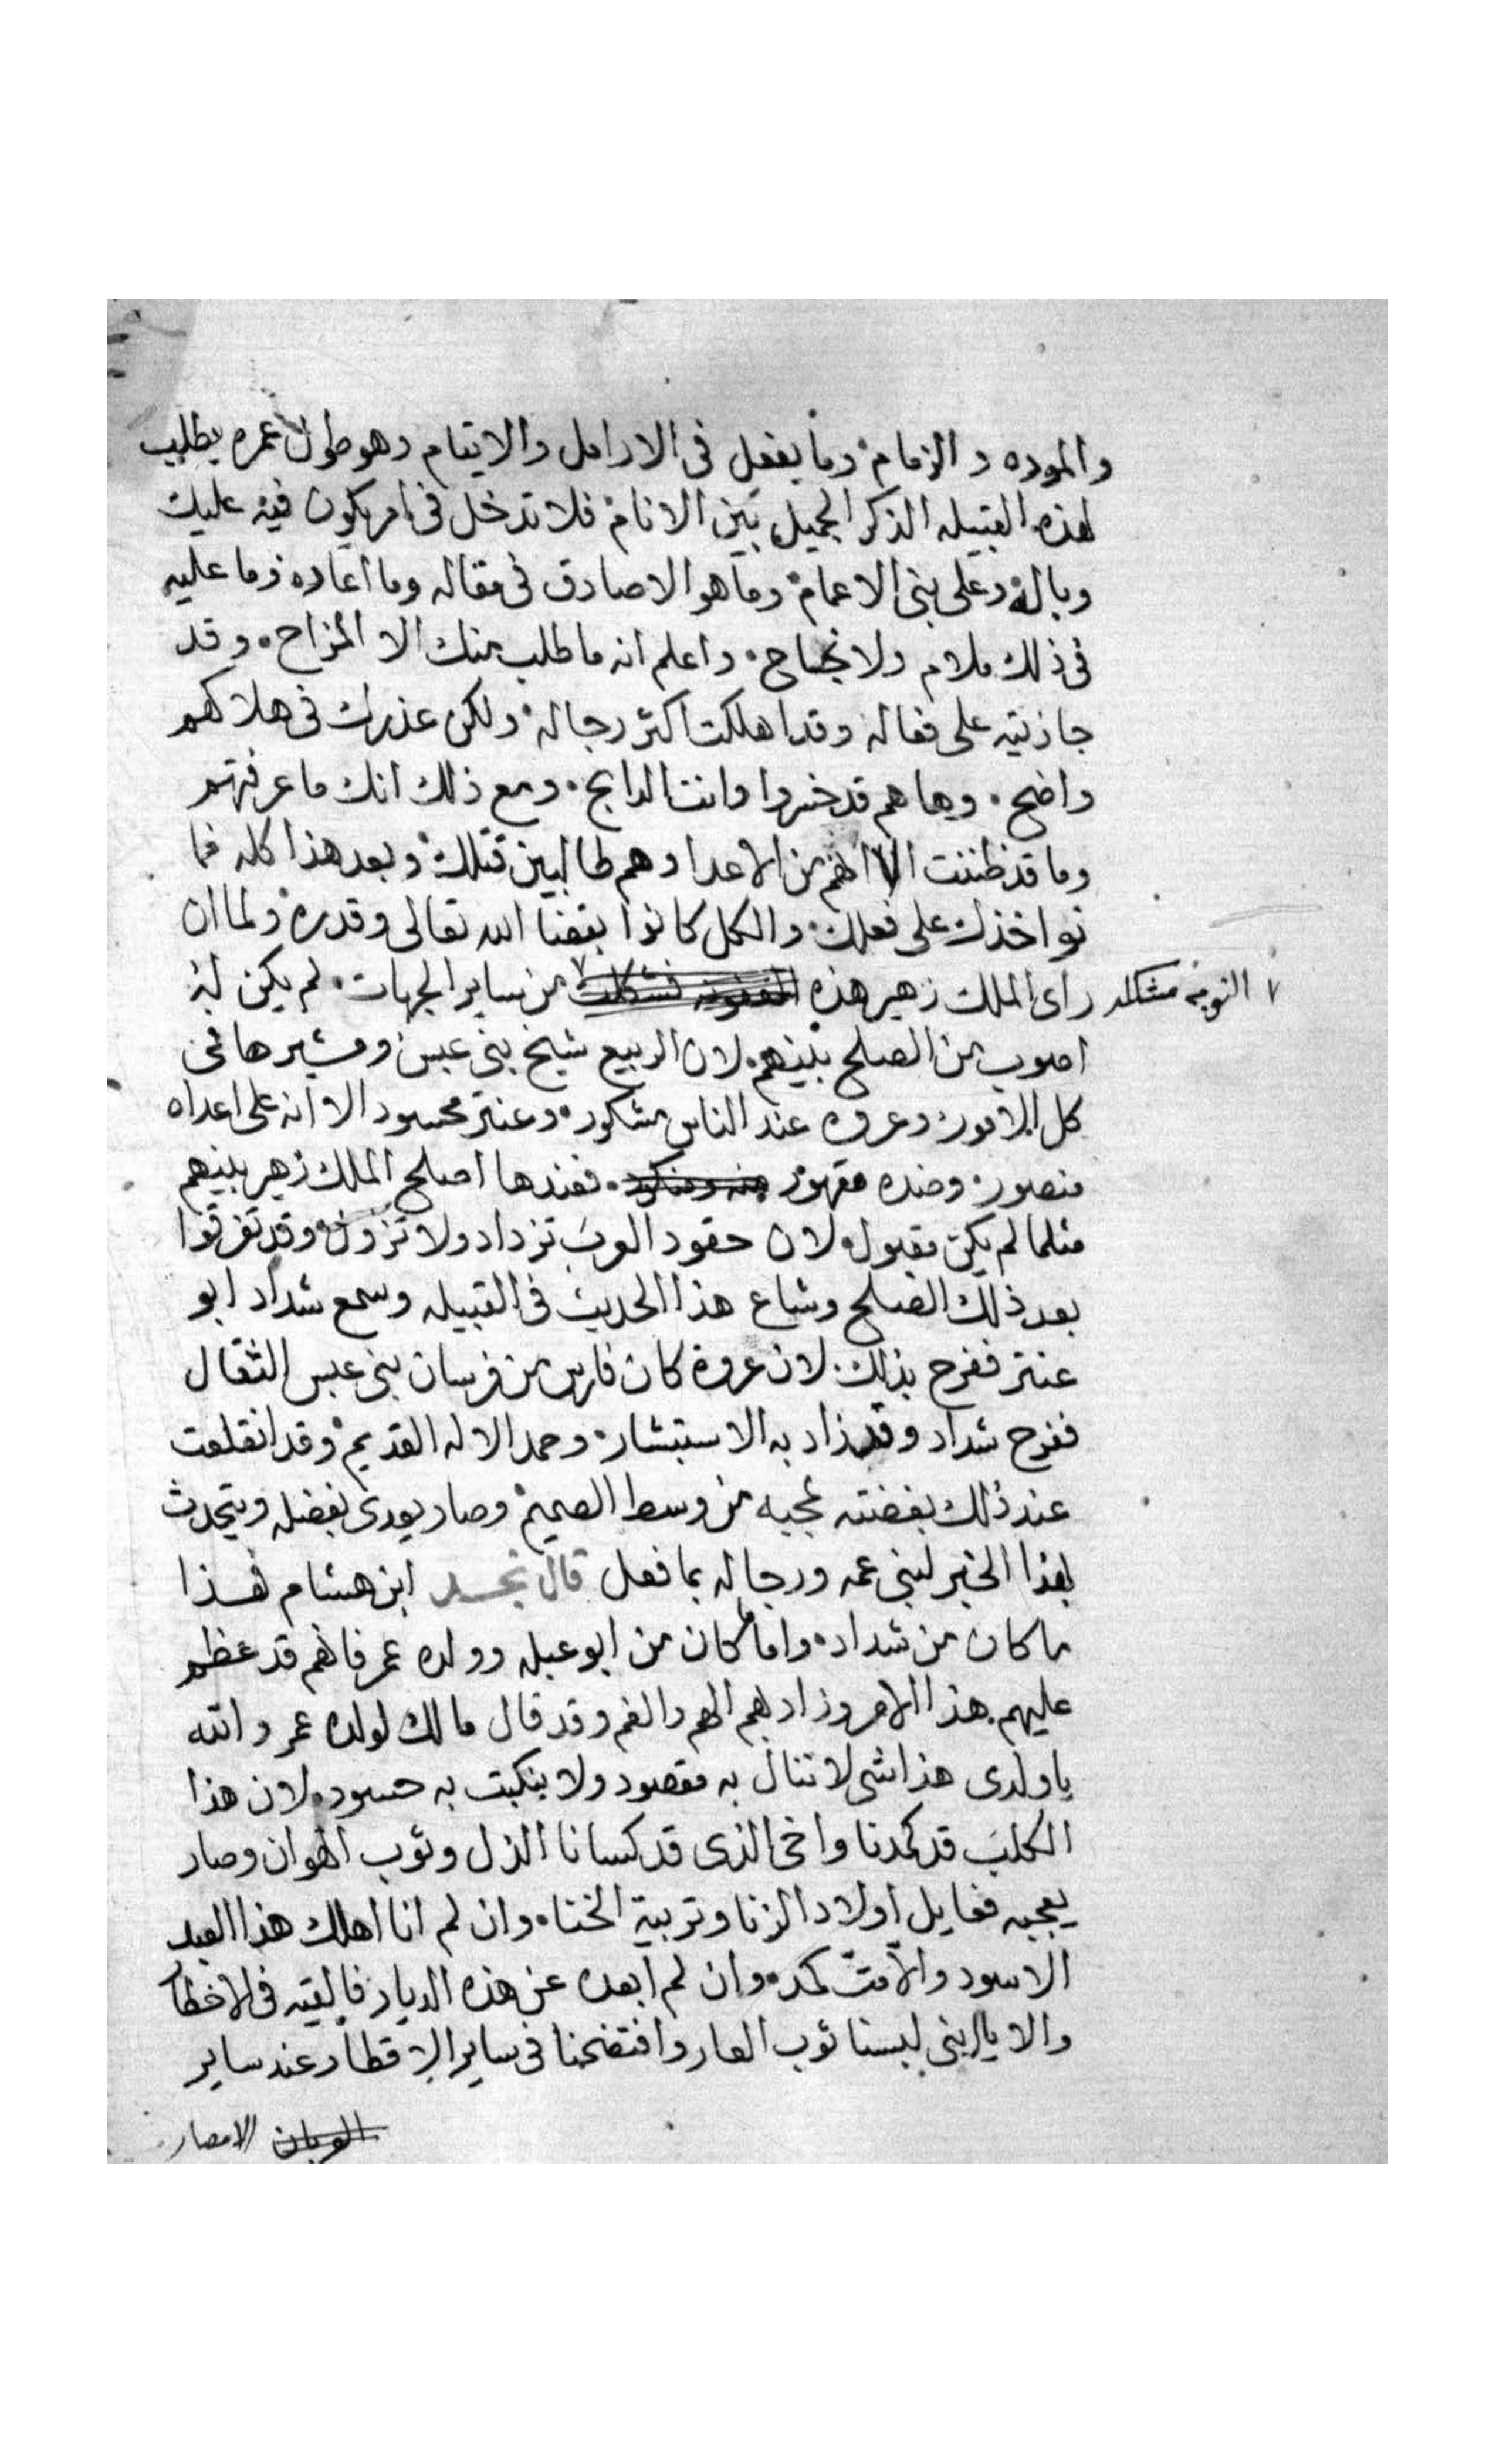 والموده والزمام وما يفعل فى الارامل والايتام وهو طول عمره يطلب
لهذه القبيله الذكر الجميل بين الانام فلا تدخل فى امر يكون فيه عليك
وبال وعلى بنى الاعمام وما هو الا صادق فى مقاله وما اعاده وما عليه
فى ذلك ملام ولا نجاح واعلم انه ما طلب منك الا المزاح وقد
جازيته على فعاله وقد اهلكت اكثر رجاله ولكن عذرك فى هلاكهم
واضح وها هم قد خسروا وانت الرابح ومع ذلك انك ما عرفتهم
وما قد ظننت الا انهم من الاعدا وهم طالبين قتلك وبعد هذا كله فما
نواخذك على فعلك والكل كانوا بقضا الله تعالى وقدره ولما ان
راى الملك زهير هذه من ساير الجهات لم يكن له
٧ النوبه مشكله
اصوب من الصلح بينهم لان الربيع شيخ بنى عبس ومشيرها فى
كل الامور وعروه عند الناس مشكور وعنتر محسود الا انه على اعداه
منصور وضده مقهور فعندها اصلح الملك زهير بينهم
مثلما لم يكن مقبول لان حقود العرب تزداد ولا تزول وقد تفرقوا
بعد ذلك الصلح وشاع هذا الحديث فى القبيله وسمع شداد ابو
عنتر ففرح بذلك لان عروة كان فارس من فرسان بنى عبس الثقال
ففرح شداد وقد زاد به الاستبشار وحمد الاله القديم وقد انقلعت
عند ذلك بغضته لمحبه من وسط الصميم وصار يورى بفضله ويتحدث
بهذا الخبر لبنى عمه ورجاله بما فعل قال نجد ابن هشام فهذا
ما كان من شداد واما ما كان من ابو عبله وولده عمر فانهم قد عظم
عليهم هذا الامر وزاد بهم الهم والغم وقد قال مالك لولده عمر والله
يا ولدى هذا شى لا ننال به مقصود ولا ينكبت به حسود لان هذا
الكلب قد كمدنا واخى الذى قد كسانا الذل وثوب الهوان وصار
يعجبه فعايل اولاد الزنا وتربية الخنا وان لم انا اهلك هذا العبد
الاسود والا مت كمد وان لم ابعده عن هذه الديار فالقيه فى الاخطار
والا يا بنى لبسنا ثوب العار وافتضحنا فى ساير الاقطار عند ساير
العربان الامصار